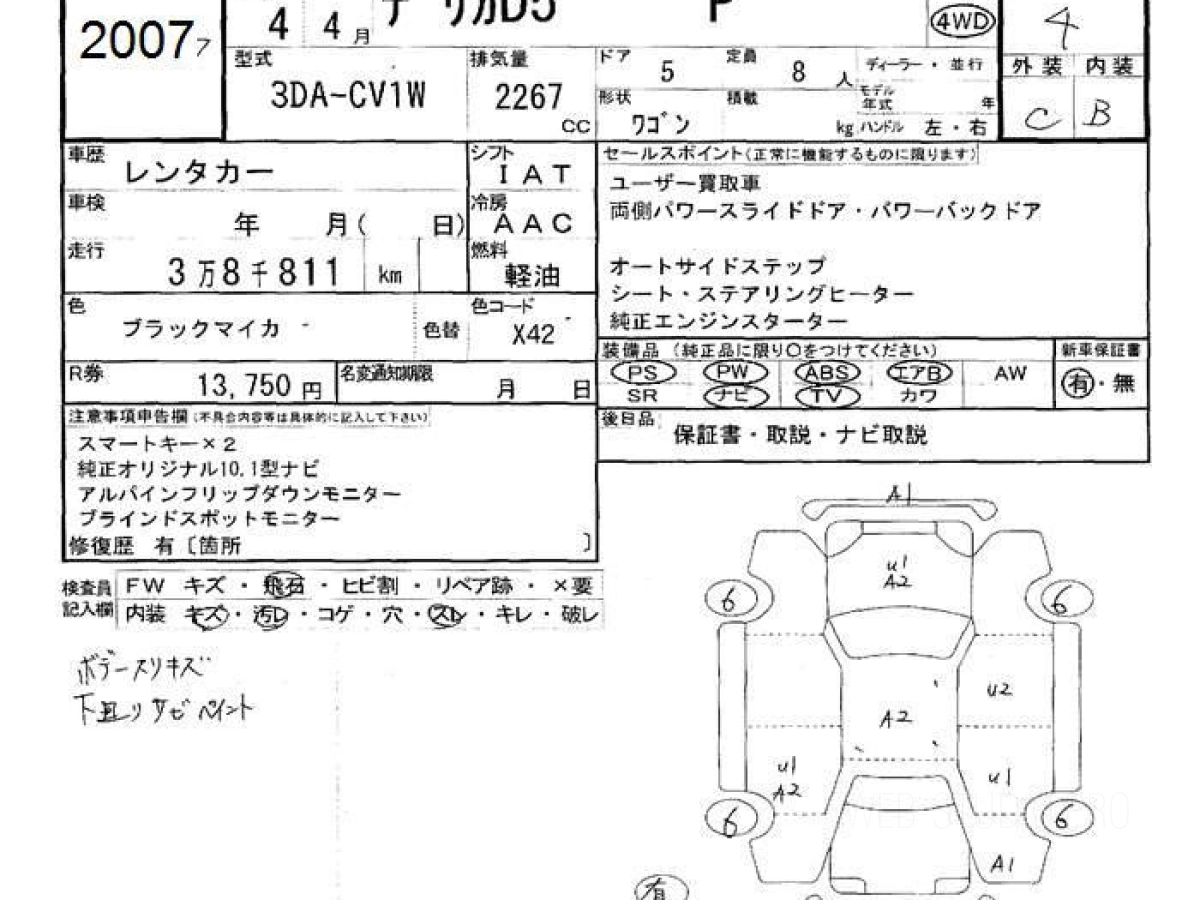 2007 7
4 4月 デリカD5 P 4WD 4
型式 排気量 ドア 定員 ディーラー・並行 外装 内装
3DA-CV1W 2267 CC 5 8人
形状 積載 モデル年式 年
ワゴン kg ハンドル 左・右 C B
車歴 レンタカー シフト IAT
車検 年 月( 日) 冷房 AAC
走行 3万8千811 km 燃料 軽油
色 ブラックマイカ 色替 色コード X42
R券 13,750円 名変通知期限 月 日
セールスポイント(正常に機能するものに限ります)
ユーザー買取車
両側パワースライドドア・パワーバックドア
オートサイドステップ
シート・ステアリングヒーター
純正エンジンスターター
装備品 (純正品に限り○をつけてください) 新車保証書
PS PW ABS エアB AW 有・無
SR ナビ TV カワ
後日品 保証書・取説・ナビ取説
注意事項申告欄(不具合内容等は具体的に記入して下さい)
スマートキー×2
純正オリジナル10.1型ナビ
アルパインフリップダウンモニター
ブラインドスポットモニター
修復歴 有〔箇所 〕
検査員記入欄 FW キズ・飛石・ヒビ割・リペア跡・×要
内装 キズ・汚レ・コゲ・穴・スレ・キレ・破レ
ボデースリキズ
下廻りサビペイント
A1
U1
A2
6 6
U2
A2
U1
A2
U1
6 6
A1
有